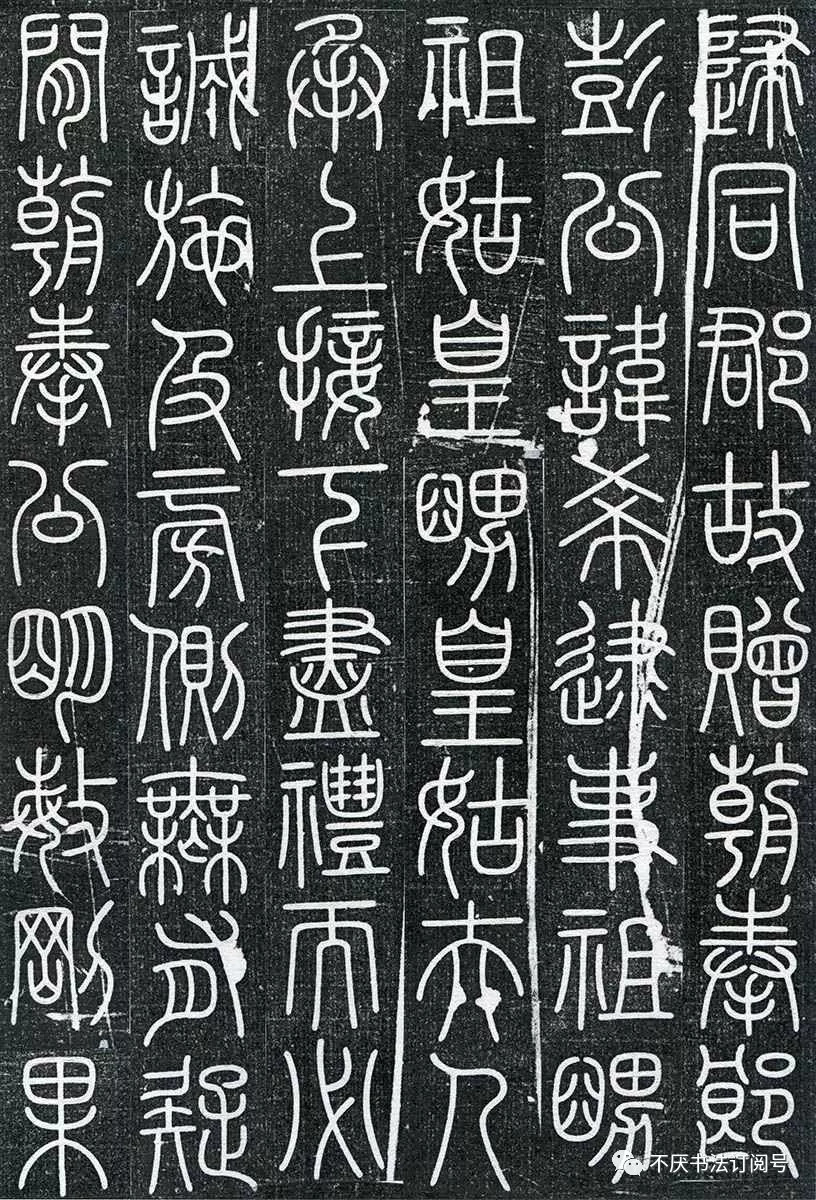 歸同郡故贈朝奉郎
彭公諱希逑事祖舅
祖姑皇舅皇姑夫人
承上接下盡禮而必
誠施及旁側無有疑
閒朝奉公明敏剛果
不厌书法订阅号